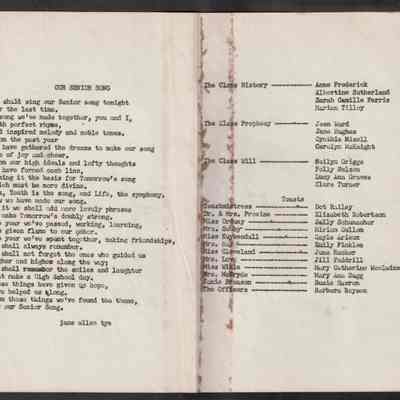 OUR SENIOR SONG
shall sing our Senior song tonight
r the last time.
song we've made together, you and I,
th perfect rhyme,
inspired melody and noble tones.
on the past year
have gathered the dreams to make our song
of joy and cheer.
on our high ideals and lofty thoughts
have formed each line,
ing it the basis for Tomorrow's song
ich must be more divine.
, Youth is the song, and life, the symphony,
we have made our song.
it we shall add more lovely phrases
make Tomorrow's doubly strong.
year we've passed, working, learning,
given flame to our ardor.
year we've spent together, making friendships,
shall always remember.
shall not forget the ones who guided us
gher and higher along the way;
shall remember the smiles and laughter
at make a High School day.
ese things have given us hope,
ve helped us along,
om these things we've found the theme,
our Senior Song.
jane ellen tye
The Class History Anne Frederick
Albertine Sutherland
Sarah Camille Ferris
Marion Tilley
The Class Prophecy Jean Ward
Jane Hughes
Cynthia Mizell
Carolyn McKnight
The Class Will Sallye Griggs
Polly Nelson
Lucy Ann Graves
Clare Turner
Toasts
Toastmistress Dot Railey
Dr. & Mrs. Preston Elizabeth Robertson
Miss Ordway Sally Schumacher
Mrs. Miriam Cullom
Miss Kuykendall Gayle
Mrs. Emily Pinklea
Miss Cleveland Jane Rucker
Mrs. Love Jill Faddrill
Miss Wikle Mary Catherine
Mrs. Mary Ann Bagg
Susie Branson Susie
The Officers Barbara Boyson